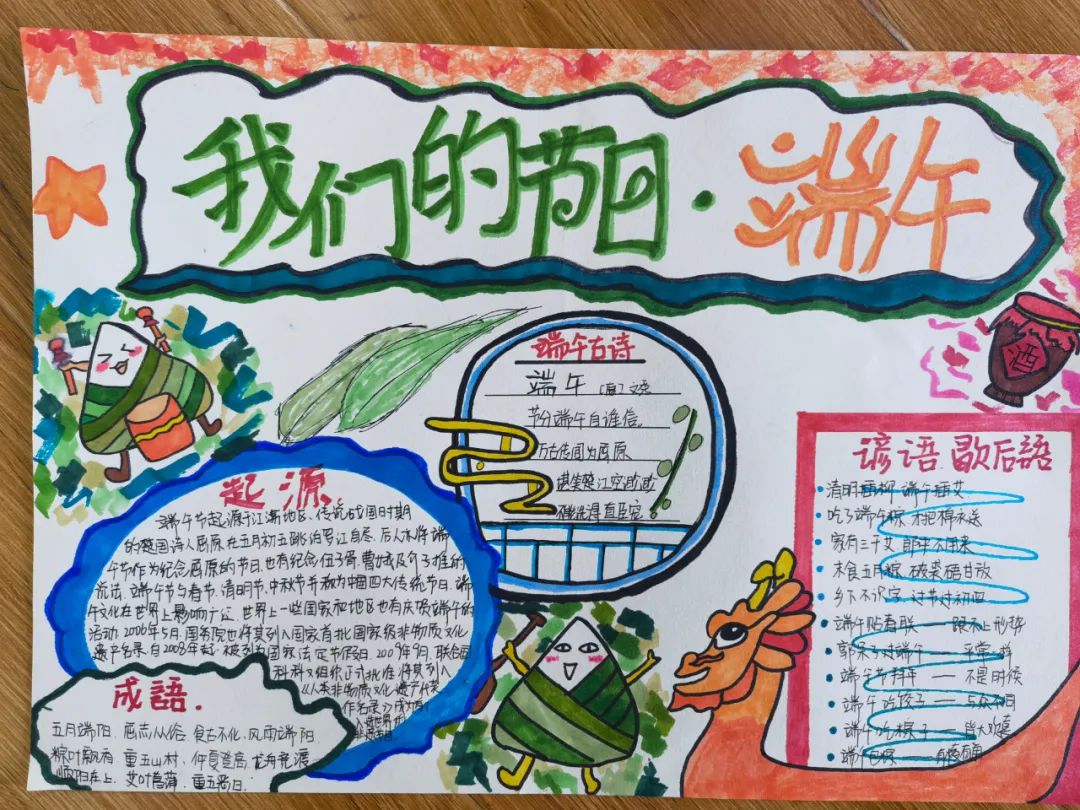 我们的节日·端午
酒
端午古诗
端午 文秀
节分端午自谁信
万古传闻为屈原
堪笑楚江空渺渺
不能洗得直臣冤
起源
端午节起源于江浙地区、传统战国时期
的楚国诗人屈原在五月初五跳汨罗江自尽、后人末将端
午节作为纪念屈原的节日、也有纪念伍子胥、曹娥及介子推的
说法、端午节与春节、清明节、中秋节并称为中国四大传统节日、端
午文化在世界上影响广泛、世界上一些国家和地区也有庆贺端午的
活动、2006年5月、国务院也将其列入国家首批国家级非物质文化
遗产名录、自2008年起、被列为国家法定节假日、2009年9月、联合国
科科文组织正式批准将其列入
《人类非物质文化遗产代表
作名录》
成語.
五月端阳、屈志从俗、食古不化、风雨端阳
粽叶飘香 重五山村、仲夏登高 龙舟竞渡
艾叶菖蒲、重五
谚语、歇后語
清明插柳 端午插艾
吃了端午粽 才把棉衣送
家有三千艾 郎中不用来
未食五月粽 破裘唔甘放
乡下不识字 过节过初四
端午贴春联 —— 跟不上形势
端午节拜年 —— 不是时候
端午吃饺子 —— 与众不同
端午吃粽子 —— 皆大欢喜